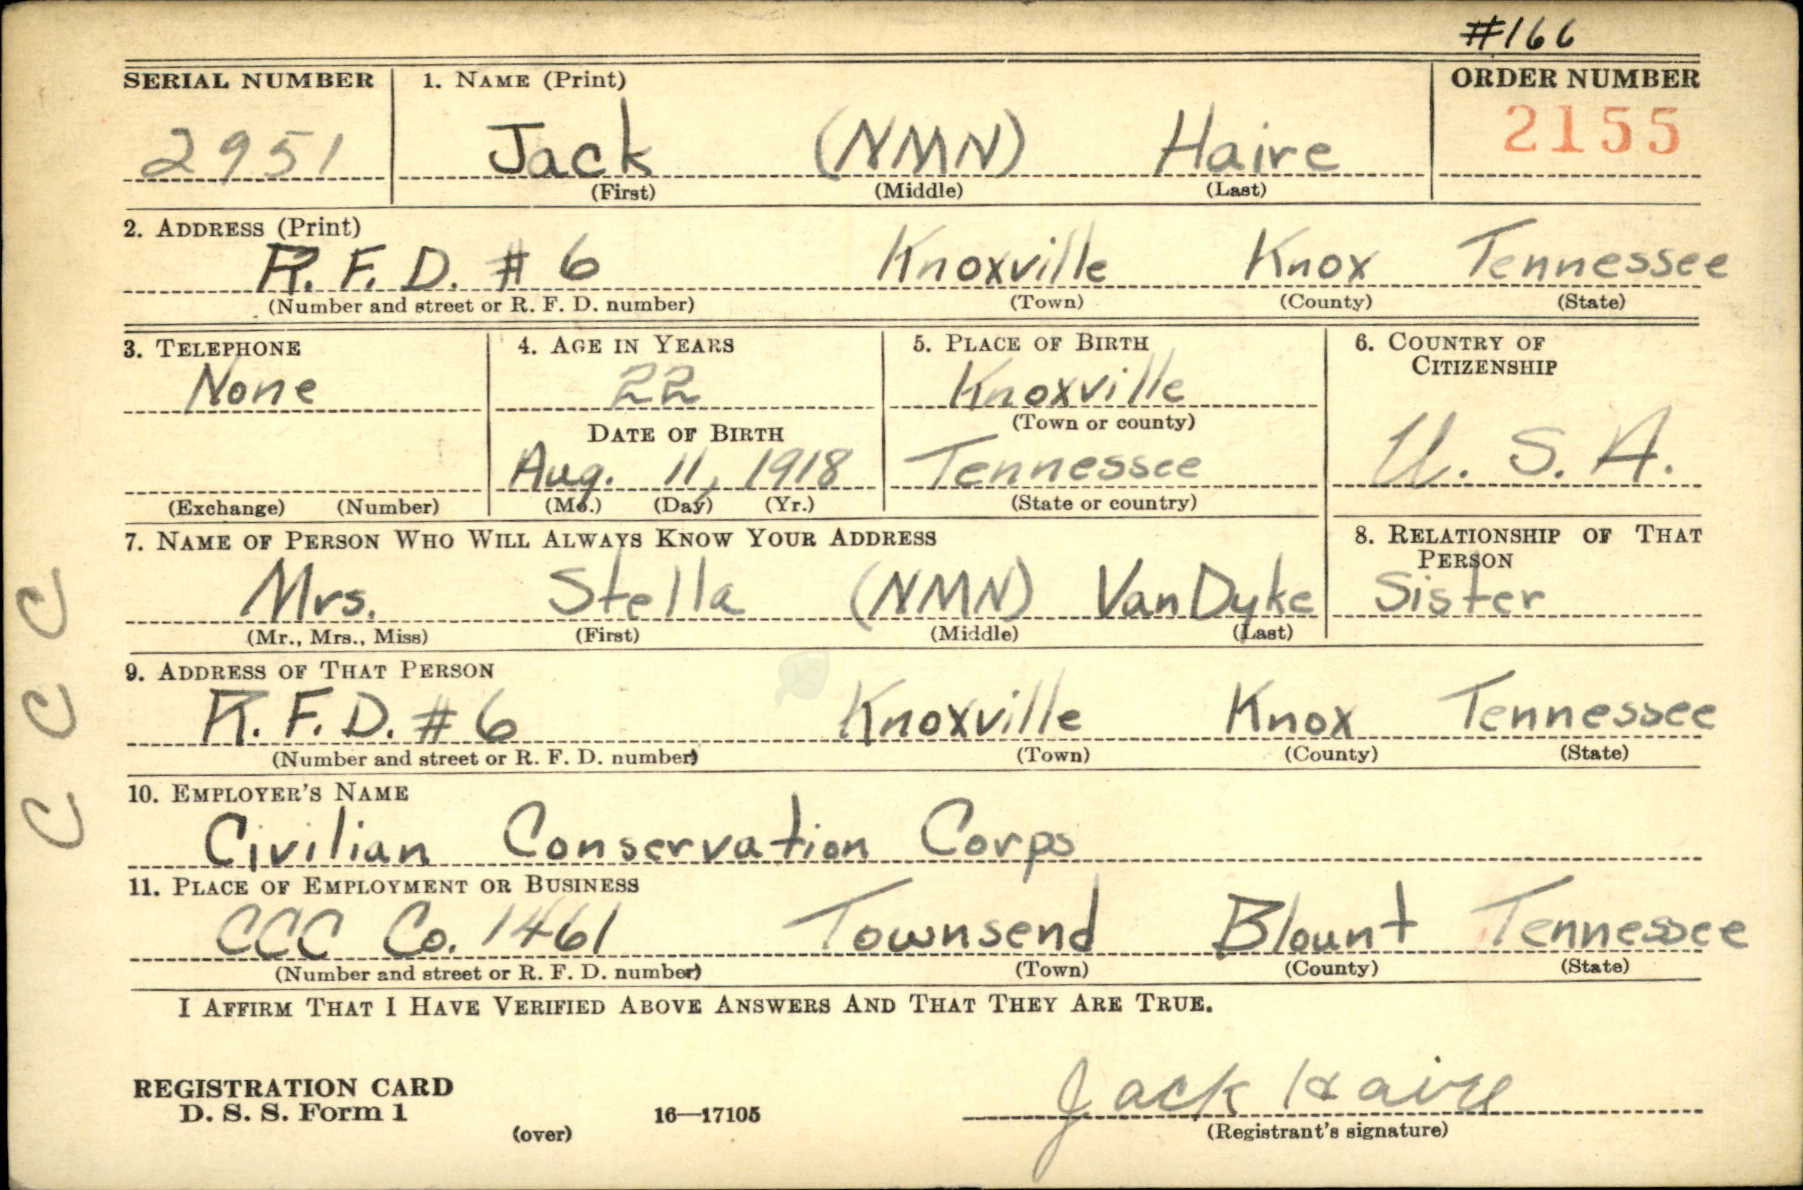 #166
SERIAL NUMBER 1. NAME (Print) ORDER NUMBER
2951 Jack (NMN) Haire 2155
(First) (Middle) (Last)
2. ADDRESS (Print)
R. F. D. # 6 Knoxville Knox Tennessee
(Number and street or R. F. D. number) (Town) (County) (State)
3. TELEPHONE 4. AGE IN YEARS 5. PLACE OF BIRTH 6. COUNTRY OF
CITIZENSHIP
None 22 Knoxville
(Town or county)
DATE OF BIRTH
Aug. 11, 1918 Tennessee U. S. A.
(Exchange) (Number) (Mo.) (Day) (Yr.) (State or country)
7. NAME OF PERSON WHO WILL ALWAYS KNOW YOUR ADDRESS 8. RELATIONSHIP OF THAT
PERSON
Mrs. Stella (NMN) VanDyke Sister
(Mr., Mrs., Miss) (First) (Middle) (Last)
9. ADDRESS OF THAT PERSON
R. F. D. # 6 Knoxville Knox Tennessee
(Number and street or R. F. D. number) (Town) (County) (State)
10. EMPLOYER'S NAME
Civilian Conservation Corps
11. PLACE OF EMPLOYMENT OR BUSINESS
CCC Co. 1461 Townsend Blount Tennessee
(Number and street or R. F. D. number) (Town) (County) (State)
I AFFIRM THAT I HAVE VERIFIED ABOVE ANSWERS AND THAT THEY ARE TRUE.
REGISTRATION CARD
D. S. S. Form 1 16—17105 Jack Haire
(over) (Registrant's signature)
C C C